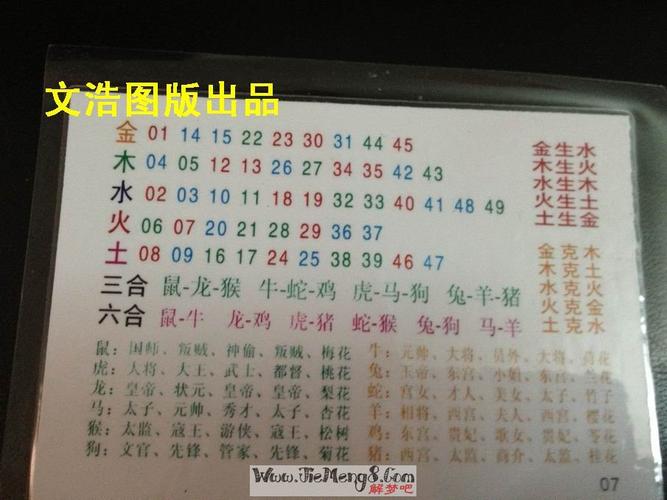 文浩图版出品
金 01 14 15 22 23 30 31 44 45
木 04 05 12 13 26 27 34 35 42 43
水 02 03 10 11 18 19 32 33 40 41 48 49
火 06 07 20 21 28 29 36 37
土 08 09 16 17 24 25 38 39 46 47
三合 鼠-龙-猴 牛-蛇-鸡 虎-马-狗 兔-羊-猪
六合 鼠-牛 龙-鸡 虎-猪 蛇-猴 兔-狗 马-羊
金生水
木生火
水生木
火生土
土生金
金克木
木克土
水克火
火克金
土克水
鼠：国师、叛贼、神偷、叛贼、梅花
虎：大将、大王、武士、都督、桃花
龙：皇帝、状元、皇帝、皇帝、梨花
马：太子、元帅、秀才、太子、杏花
猴：太监、寇王、游侠、寇王、松树
狗：文官、先锋、管家、先锋、菊花
牛：元帅、大将、员外、大将、荷花
兔：玉帝、东宫、小姐、东宫、兰花
蛇：宫女、才人、美女、太子、竹子
羊：相将、西宫、夫人、西宫、樱花
鸡：东宫、贵妃、歌女、贵妃、苓花
猪：西宫、太监、商介、太监、桂花
07
Www.JieMeng8.Com
解梦吧